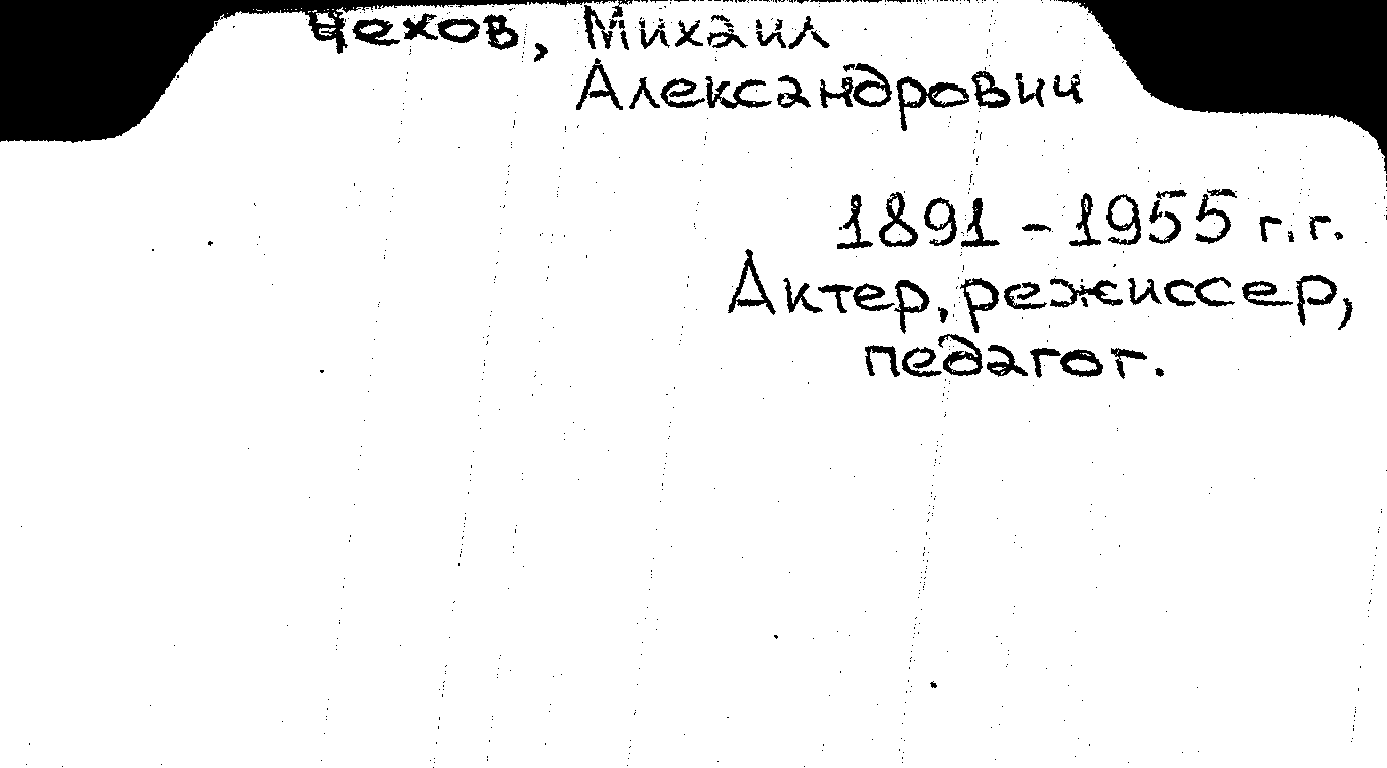 Чехов, Михаил
Александрович
1891 - 1955 г.г.
Актер, режиссер,
педагог.